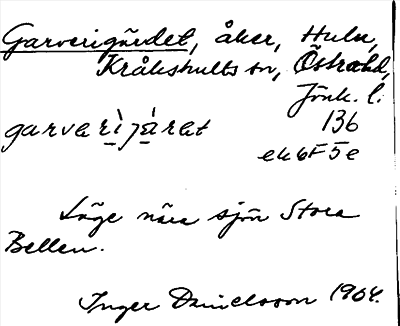 Garverigärdet, åker, Hulu,
Kråkshults sn, Östra hd,
Jönk. l.
garverijärat 136
ek 6F5e
Läge nära sjön Stora
Bellen.
Inger Danielsson 1964.